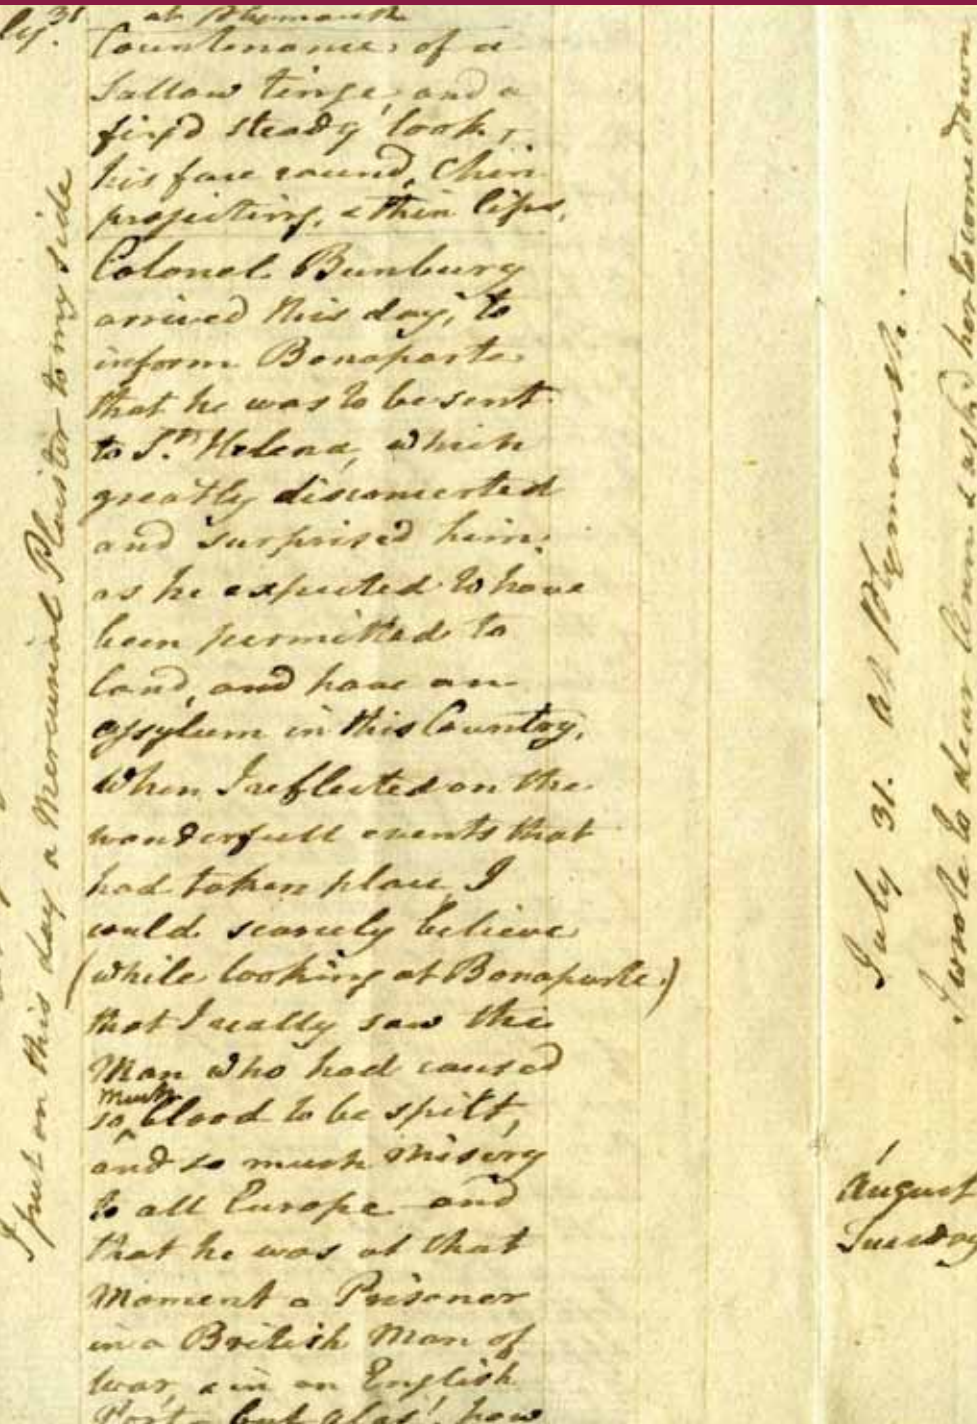 ly. 31
at Plymouth
Countenance, of a
Sallow tinge, and a
fix'd steady look,
his face round, Chin
projecting, & thin lips.
Colonel Bunbury
arrived this day, to
inform Bonaparte
that he was to be sent
to St. Helena, which
greatly disconcerted
and surprised him,
as he expected to have
been permitted to
land, and have an
assylum in this Country,
When I reflected on the
wonderfull events that
had taken place, I
could scarcely believe
(while looking at Bonaparte.)
that I really saw the
Man who had caused
so much blood to be spilt,
and so much Misery
to all Europe and
that he was at that
Moment a Prisoner
in a British Man of
War, & in an English
Port - but alas! how
I put on this day a Mercurial Plaister to my side
July 31. at Plymouth.
I wrote to dear her to come down
August
Tuesday